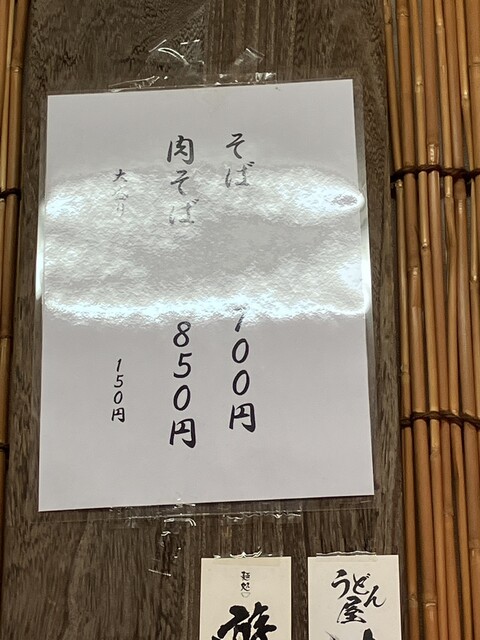 そば 700円
肉そば 850円
大盛り 150円
麺処
うどん屋